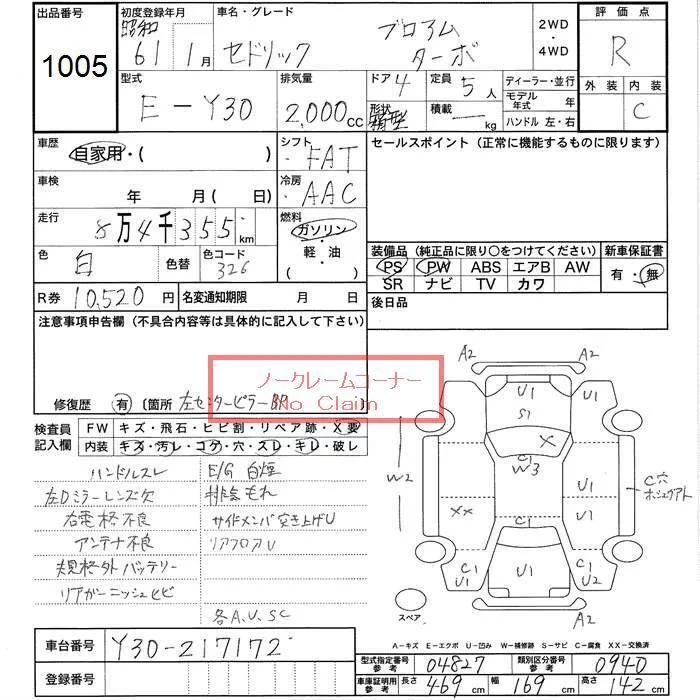 出品番号 初度登録年月 車名・グレード 評価点
1005
昭和 61 1月 セドリック ブロアム ターボ
2WD ・ 4WD
R
型式 排気量 ドア 4 定員 5人 ディーラー・並行 外装 内装
E-Y30 2,000cc 形状 箱型 積載 ー kg モデル年式 年
ハンドル 左・右 C
車歴 自家用・( ) シフト ・FAT セールスポイント(正常に機能するものに限ります)
車検 年 月(日) 冷房 ・AAC
走行 8万4千355km 燃料 ガソリン・軽・油・( )
色 白 色替 色コード 326
装備品(純正品に限り○をつけてください) 新車保証書
PS PW ABS エアB AW 有・無
SR ナビ TV カワ
R券 10,520円 名変通知期限 月 日 後日品
注意事項申告欄(不具合内容等は具体的に記入して下さい)
ノークレームコーナー
No Claim
修復歴 有 〔箇所 左センターピラーBP
検査員記入欄 FW キズ・飛石・ヒビ割・リペア跡・X要
内装 キズ・汚レ・コゲ・穴・スレ・キレ・破レ
ハンドルスレ E/G 白煙
左Dミラーレンズ欠 排気もれ
右電格不良 サイドメンバ突き上げU
アンテナ不良 リアフロアU
規格外バッテリー
リアガーニッシュヒビ
各A.U.SC
A2 A2
U1
S1
X
C1
W3
W2
U1
C穴
XX
U1
C1
C1 U1
U1
C1 U2
A2
スペア
車台番号 Y30-217172
登録番号
A-キズ E-エクボ U-凹み W-補修跡 S-サビ C-腐食 XX-交換済
型式指定番号 参考 04827 類別区分番号 参考 0940
車庫証明用 参考 長さ 469cm 幅 169cm 高さ 142cm